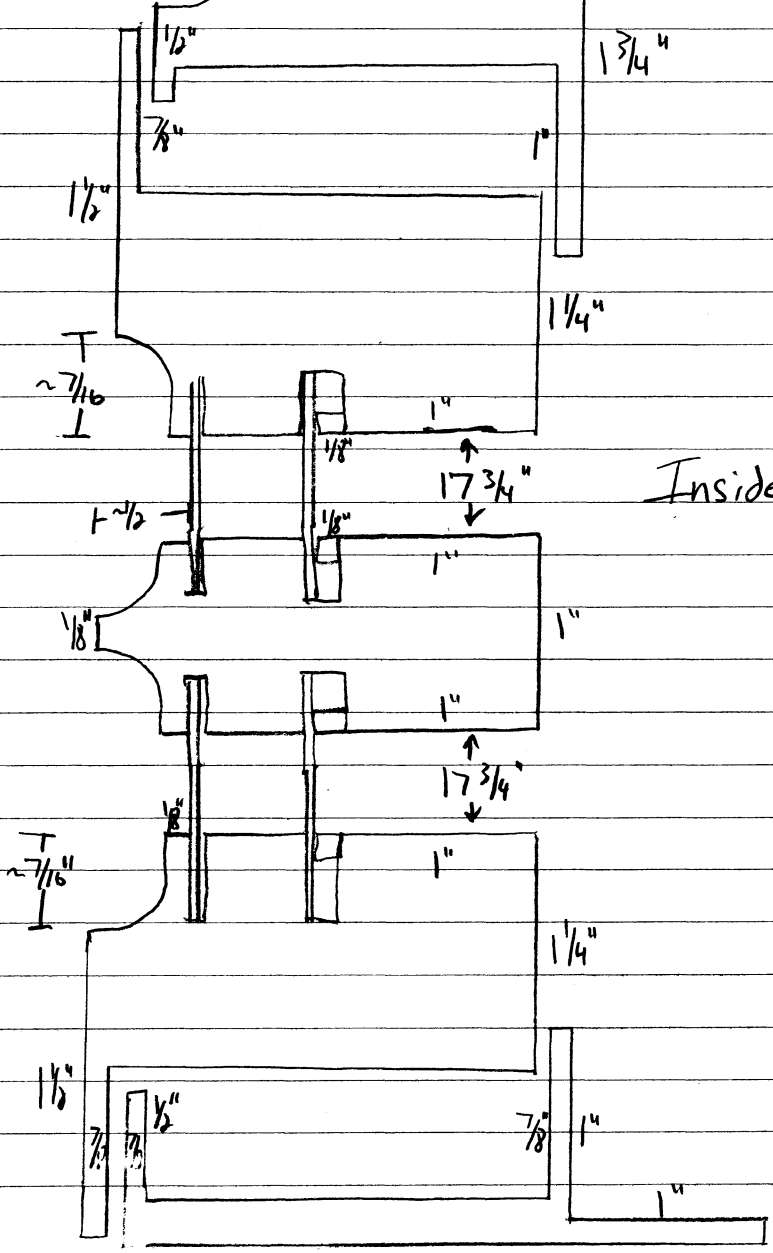 1/2"
1 3/4"
7/8"
1"
1 1/2"
1 1/4"
~7/16
1"
1/8"
17 3/4"
Inside
~1/2
1/8"
1"
1/8"
1"
1"
17 3/4"
1/8"
~7/16"
1"
1 1/4"
1 1/2"
1/2"
7/8"
1"
1"